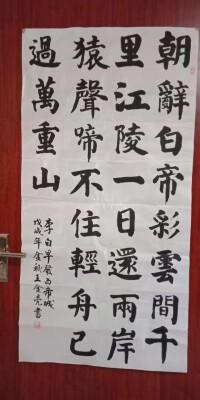 朝辭白帝彩雲間千
里江陵一日還兩岸
猿聲啼不住輕舟已
過萬重山
李白早發白帝城
戊戌年金秋王金亮書